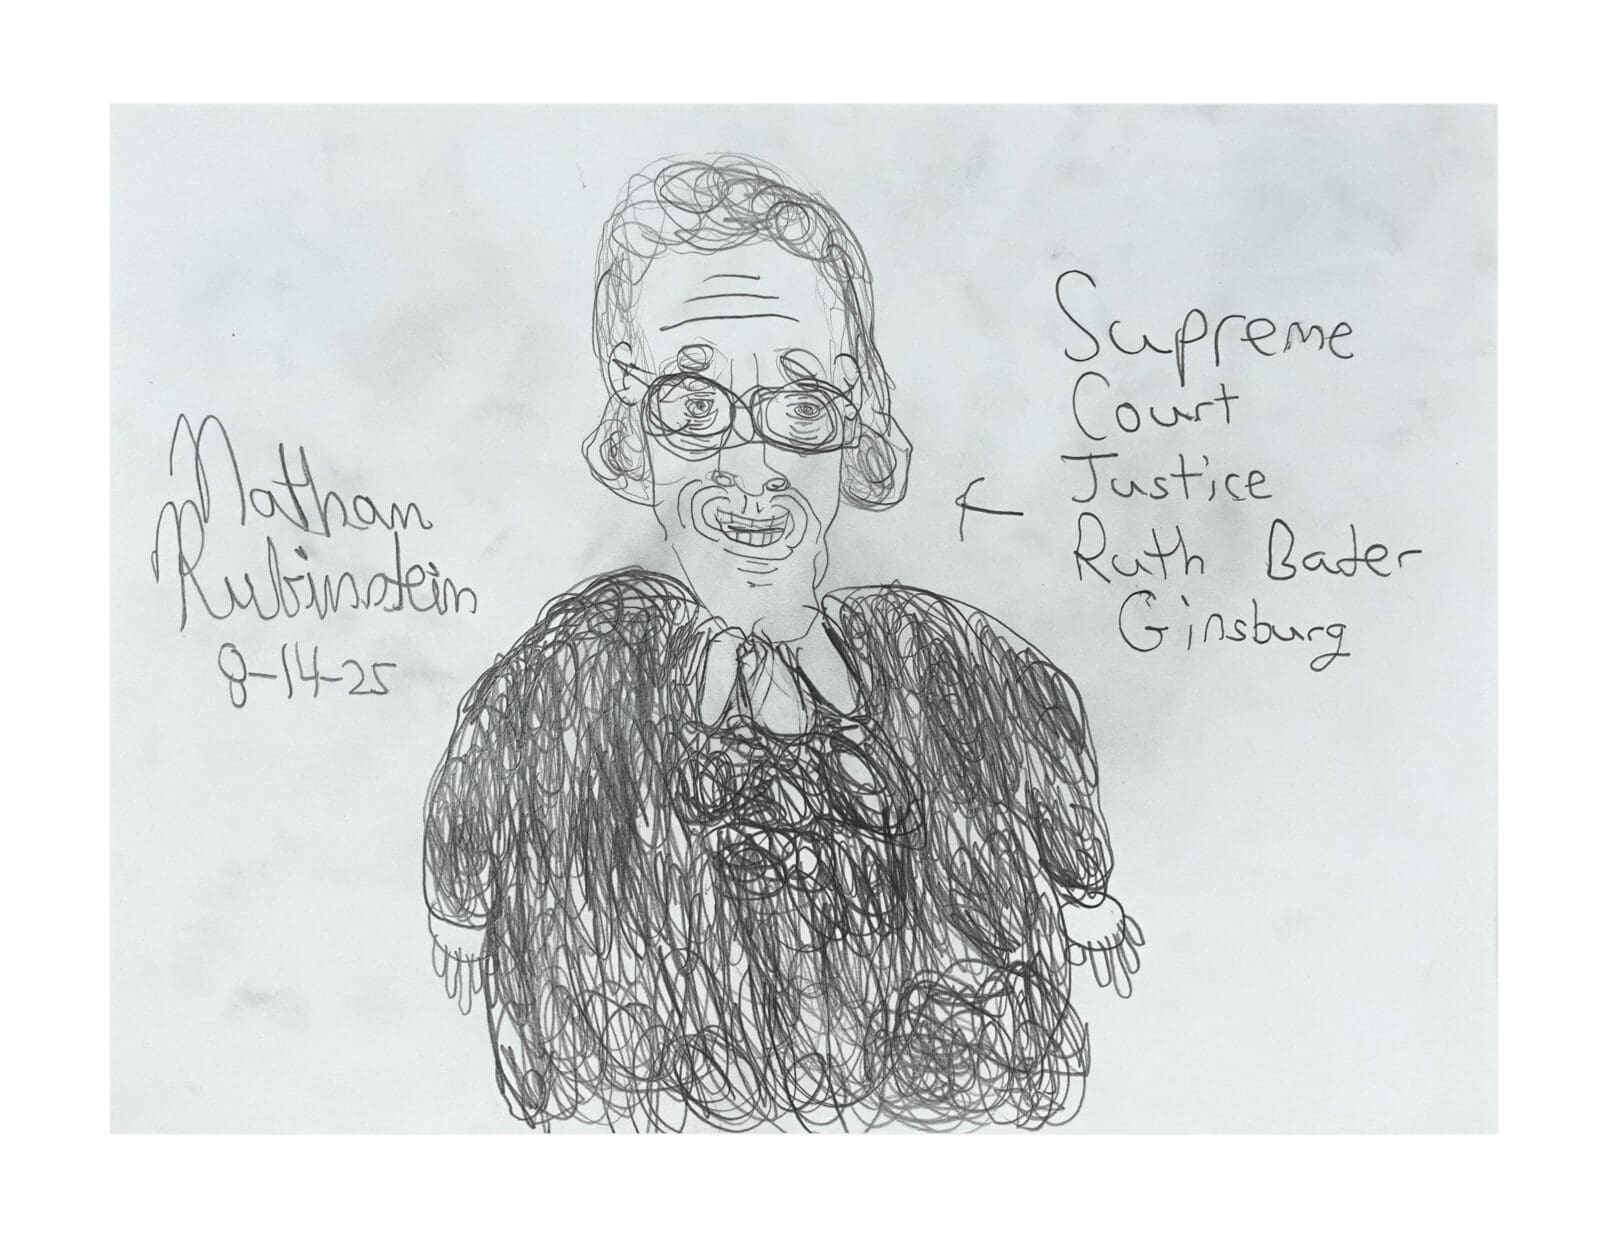 Nathan
Rubinstein
8-14-25
Supreme
Court
Justice
Ruth Bader
Ginsburg